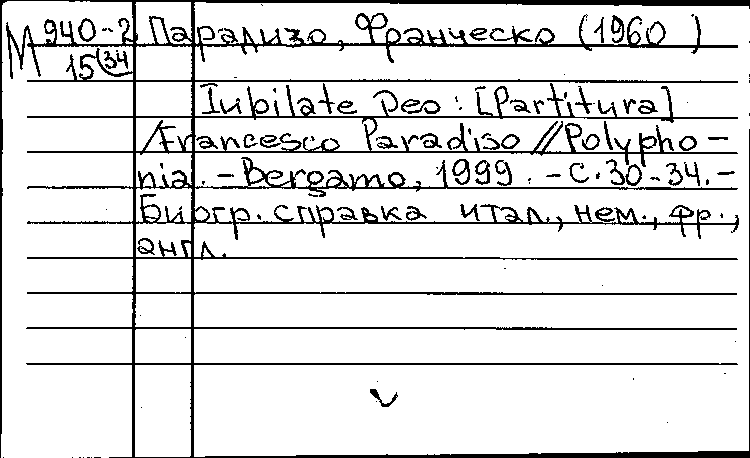 М 940-2 Парадизо, Франческо (1960 )
15 (34
Iubilate Deo : [Partitura]
/Francesco Paradiso //Polypho-
nia. - Bergamo, 1999. - С. 30-34. -
Биогр. справка итал., нем., фр.,
англ.